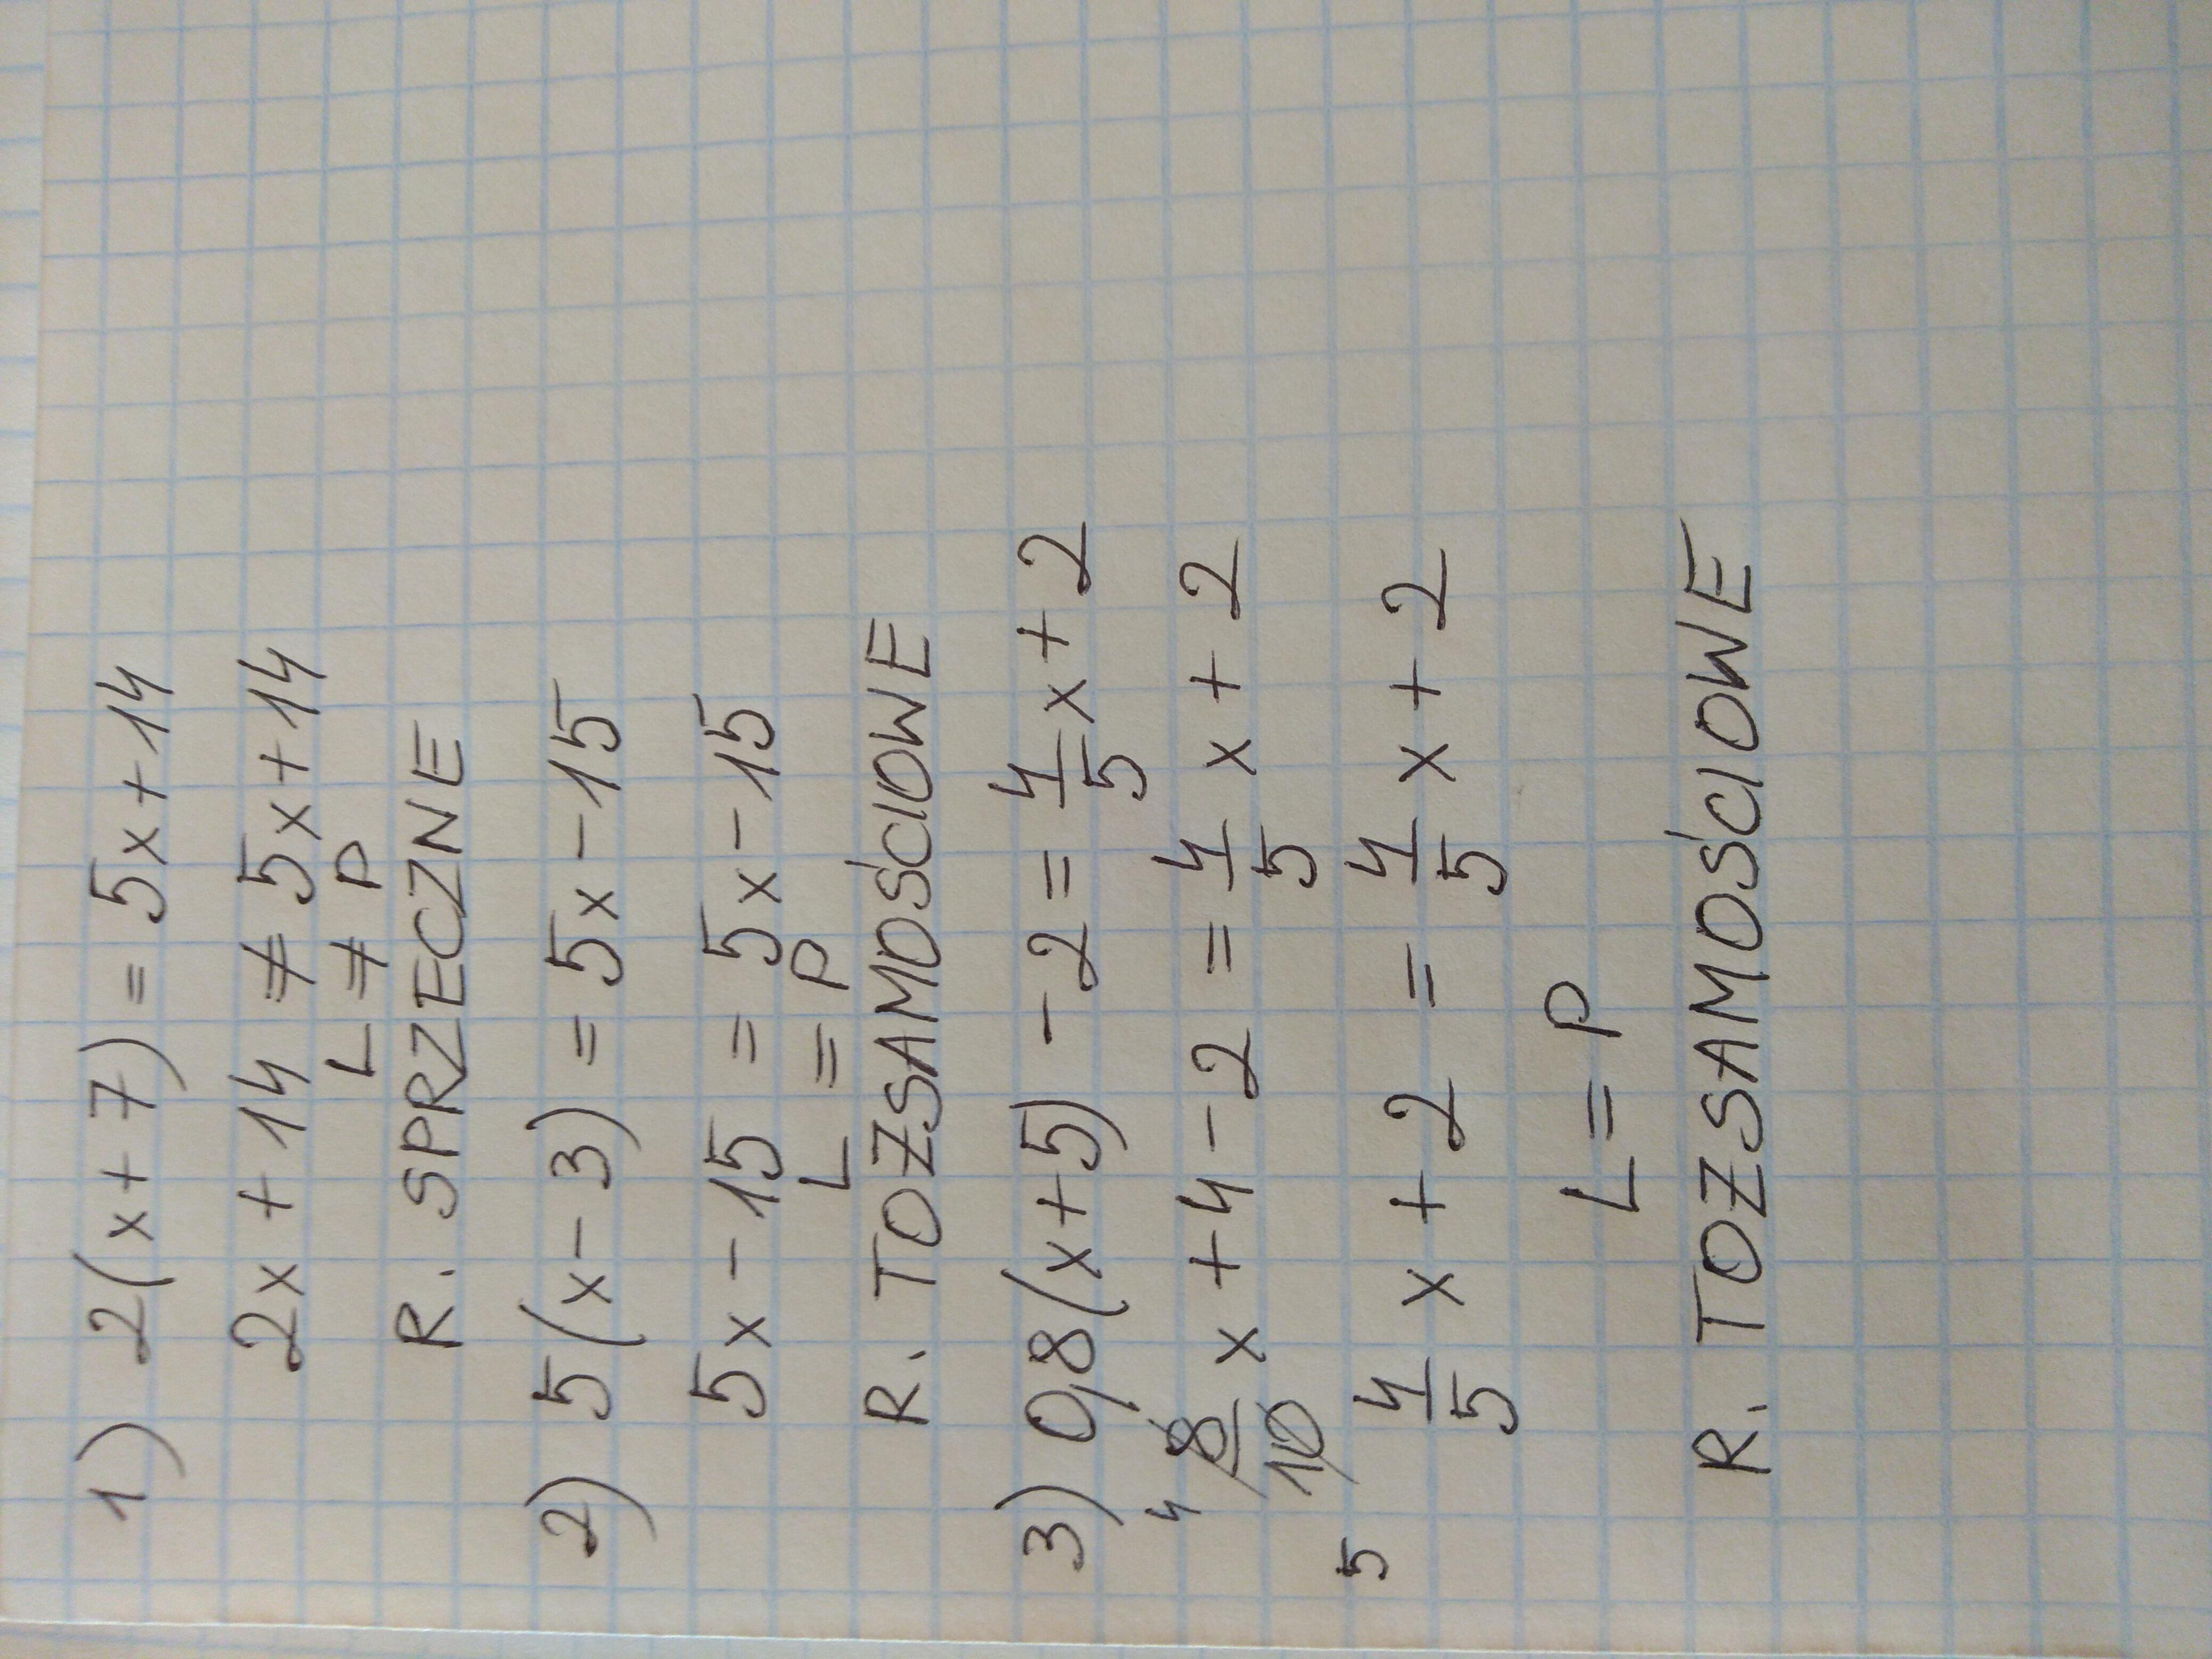 1) 2(x+7) = 5x+14
2x + 14 ≠ 5x+14
L ≠ P
R. SPRZECZNE
2) 5(x-3) = 5x-15
5x-15 = 5x-15
L = P
R. TOZSAMOŚCIOWE
3) 0,8(x+5) -2 = 4/5 x+2
4 8/10 5 x +4-2 = 4/5 x + 2
4/5 x + 2 = 4/5 x + 2
L = P
R. TOZSAMOŚCIOWE